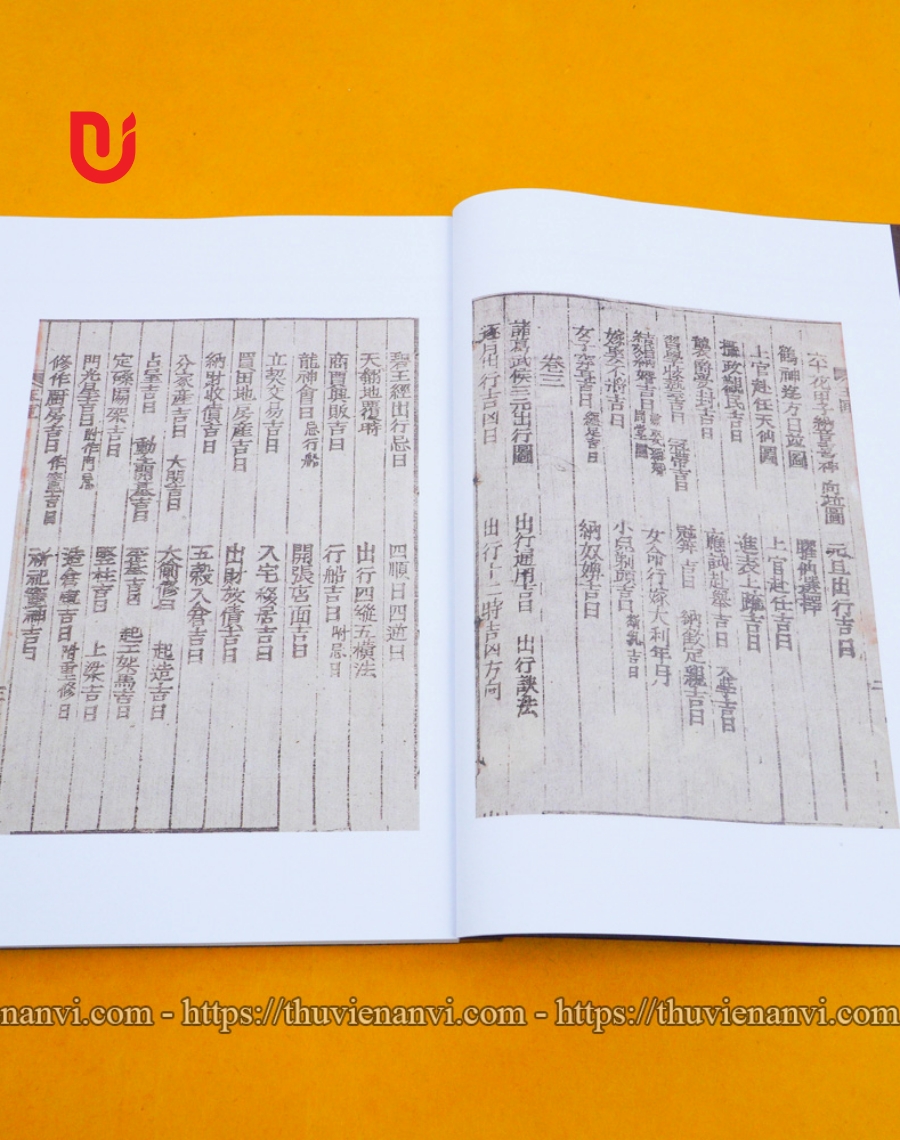 六十花甲子納音喜神方向並圖 元旦出行吉日
鶴神遊方日並圖
上官赴任天仙圖 上官赴任吉日
撫政親民吉日 進表上疏吉日
襲爵受封吉日 應試赴舉吉日 入學吉日
冠帶吉日 冠笄吉日 納釵定親吉日
結婚姻吉日 女命行嫁大利年月
嫁娶不將吉日 小兒剃頭吉日
女子穿耳吉日 納奴婢吉日
卷三
諸葛武侯三元出行圖 出行通用吉日 出行訣法
逐月出行吉凶日 出行十二時吉凶方向
聖王經出行忌日 四順日四逆日
天翻地覆時 出行四縱五橫法
商賈興販吉日 行船吉日 附忌日
龍神會日 忌行船 開張店面吉日
立契交易吉日 入宅移居吉日
買田地房產吉日 出財放債吉日
納財收債吉日 五穀入倉吉日
分家產吉日 大開吉日 大偷修日 起造吉日
占星吉日 動土開基吉日 平基吉日 起工架馬吉日
定磉扇架吉日 竪柱吉日 上梁吉日
門光星吉日 附作門忌 造倉庫吉日 附重修日
修作厨房吉日 作灶吉日 祈祀竈神吉日
https://thuvienanvi.com - https://thuvienanvi.com - https://thuvienanvi.com